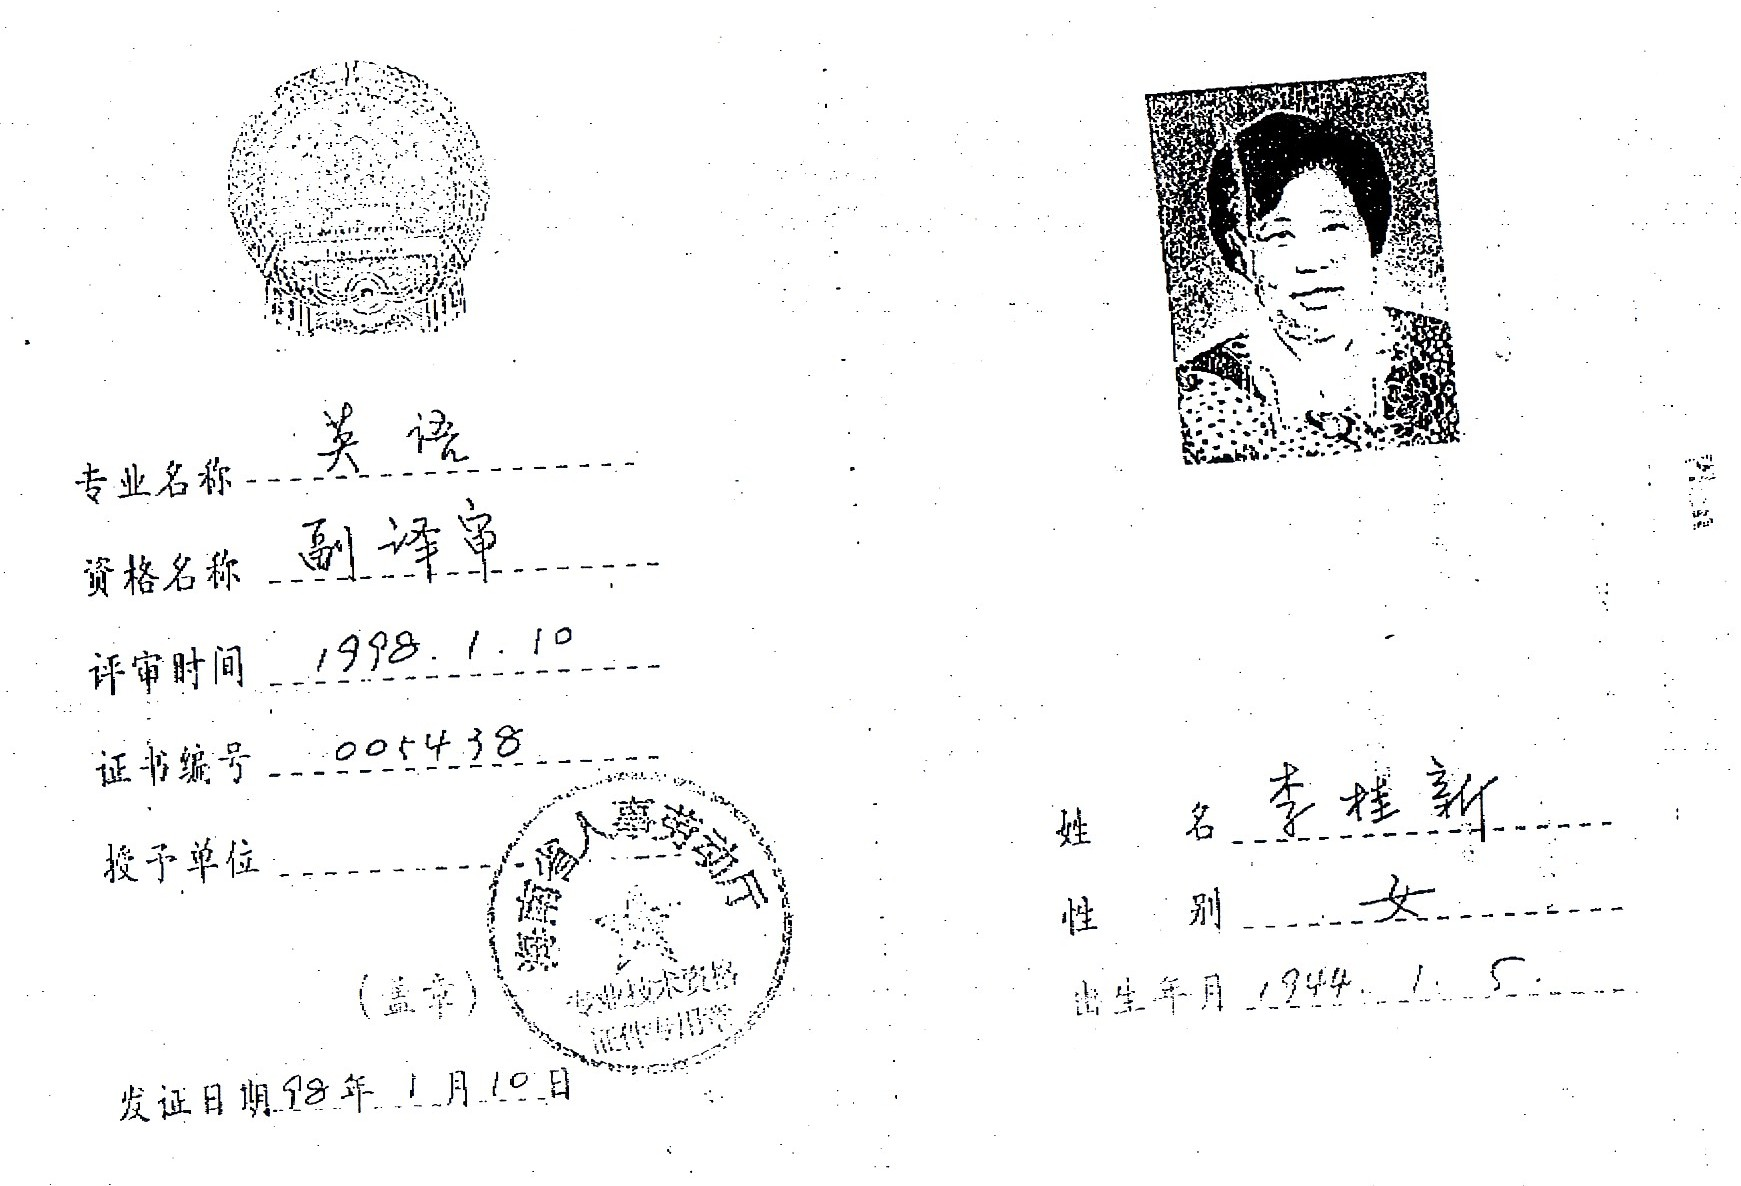 专业名称 英语
资格名称 副译审
评审时间 1998.1.10
证书编号 005438
授予单位
人事劳动厅
专业技术资格
证件专用章
(盖章)
发证日期 98年1月10日
姓名 李桂新
性别 女
出生年月 1944.1.5.